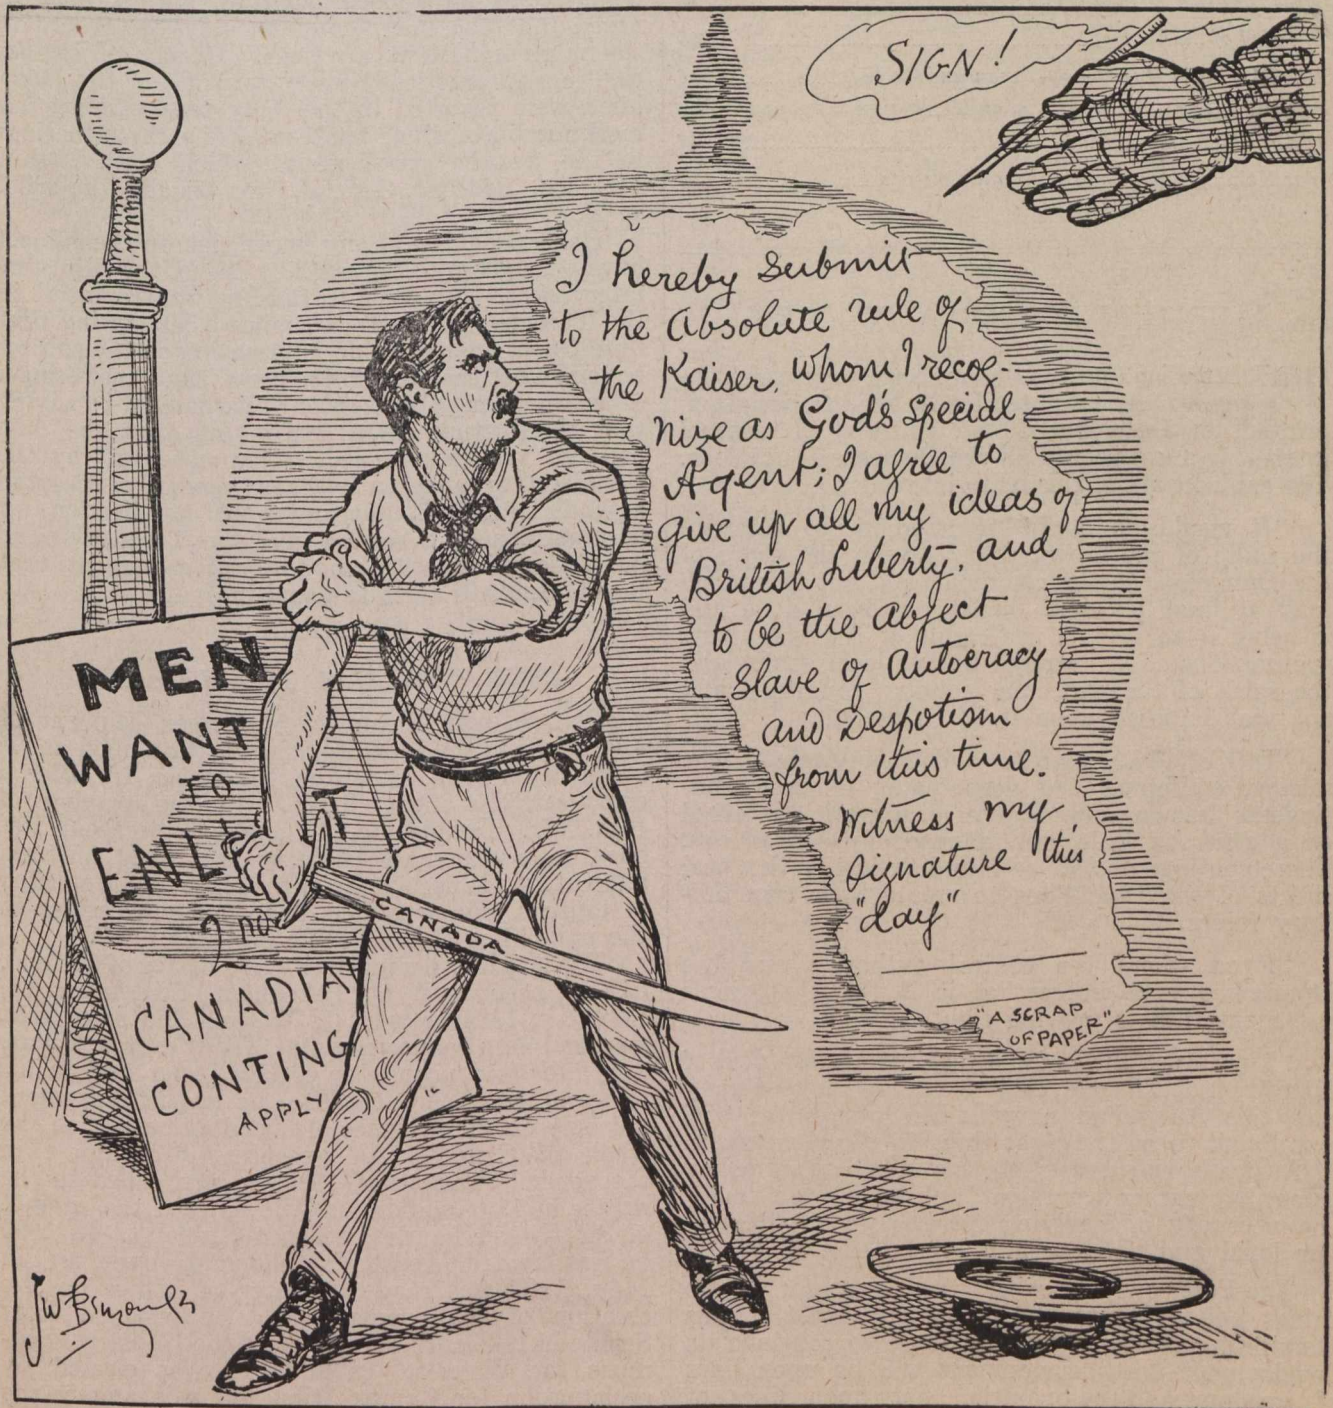 SIGN!
MAILED
FIST
I hereby submit
to the Absolute rule of
the Kaiser, whom I recog-
nize as God's special
Agent; I agree to
give up all my ideas of
British Liberty, and
to be the abject
slave of Autocracy
and Despotism
from this time.
Witness my
signature this
"day"
"A SCRAP
OF PAPER"
MEN
WANT
TO
ENLIST
2nd
CANADIAN
CONTING
APPLY
CANADA
JW Bengough